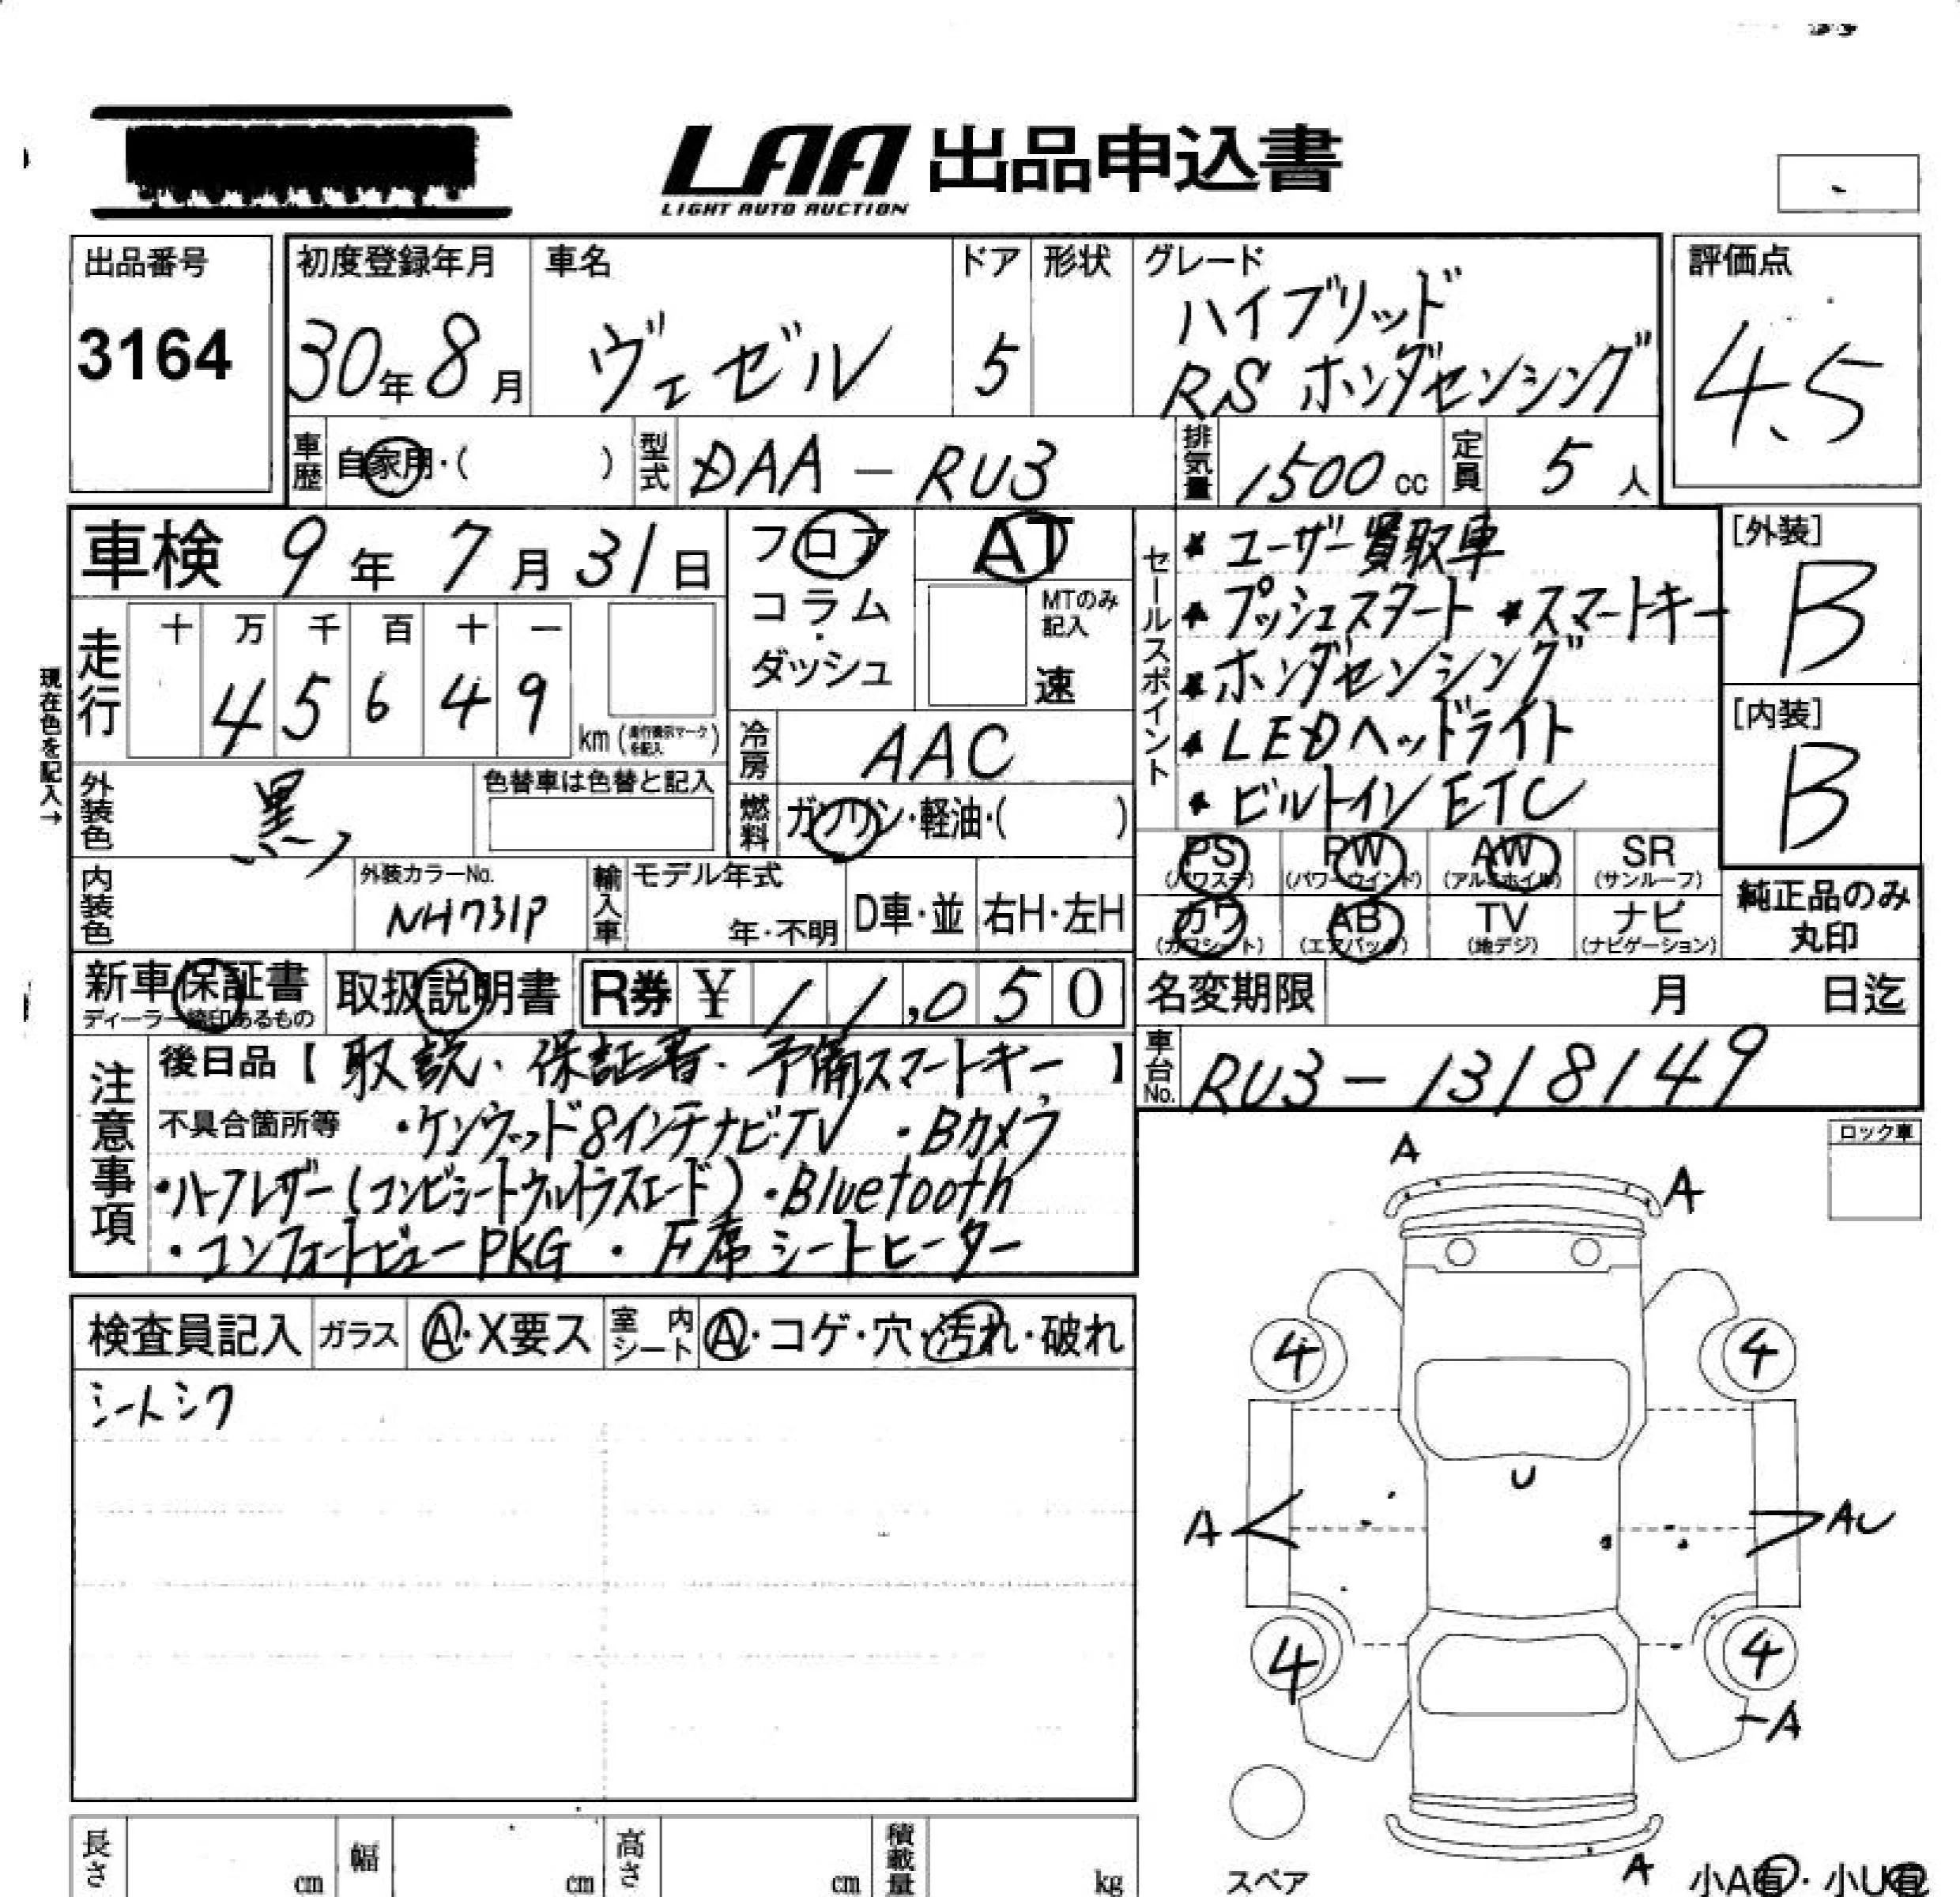 LAA 出品申込書
LIGHT AUTO AUCTION
出品番号
3164
初度登録年月
30年8月
車名
ヴェゼル
ドア
5
形状
グレード
ハイブリッド
RS ホンダセンシング
評価点
4.5
車歴
自家用・( )
型式
DAA-RU3
排気量
1500cc
定員
5人
車検 9年7月31日
フロア
コラム
・
ダッシュ
AT
MTのみ
記入
速
セールスポイント
* ユーザー買取車
* プッシュスタート *スマートキー
* ホンダセンシング
* LEDヘッドライト
* ビルトインETC
[外装]
B
[内装]
B
現在色を記入→
走行
十 万 千 百 十 一
4 5 6 4 9
km
冷房
AAC
燃料
ガソリン・軽油・( )
外装色
黒
色替車は色替と記入
内装色
外装カラーNo.
NH731P
輸入車
モデル年式
年・不明
D車・並
右H・左H
PS
(パワステ)
PW
(パワーウインド)
AW
(アルミホイル)
SR
(サンルーフ)
カワ
(カワシート)
AB
(エアバック)
TV
(地デジ)
ナビ
(ナビゲーション)
純正品のみ
丸印
新車保証書
取扱説明書
R券 ¥ 11,050
名変期限 月 日迄
車台No.
RU3-1318149
注意事項
後日品【取説・保証書・予備スマートキー】
不具合箇所等 ・ケンウッド8インチナビ・TV ・Bカメラ
・ハーフレザー(コンビシートウルトラスエード)・Bluetooth
・コンフォートビューPKG ・F席シートヒーター
ロック車
A
A
検査員記入
ガラス
A・X要ス
室内シート
A・コゲ・穴・汚れ・破れ
シートシワ
4
4
U
A
AU
4
4
A
スペア
A
小A有・小U有
長さ
cm
幅
cm
高さ
cm
積載量
kg